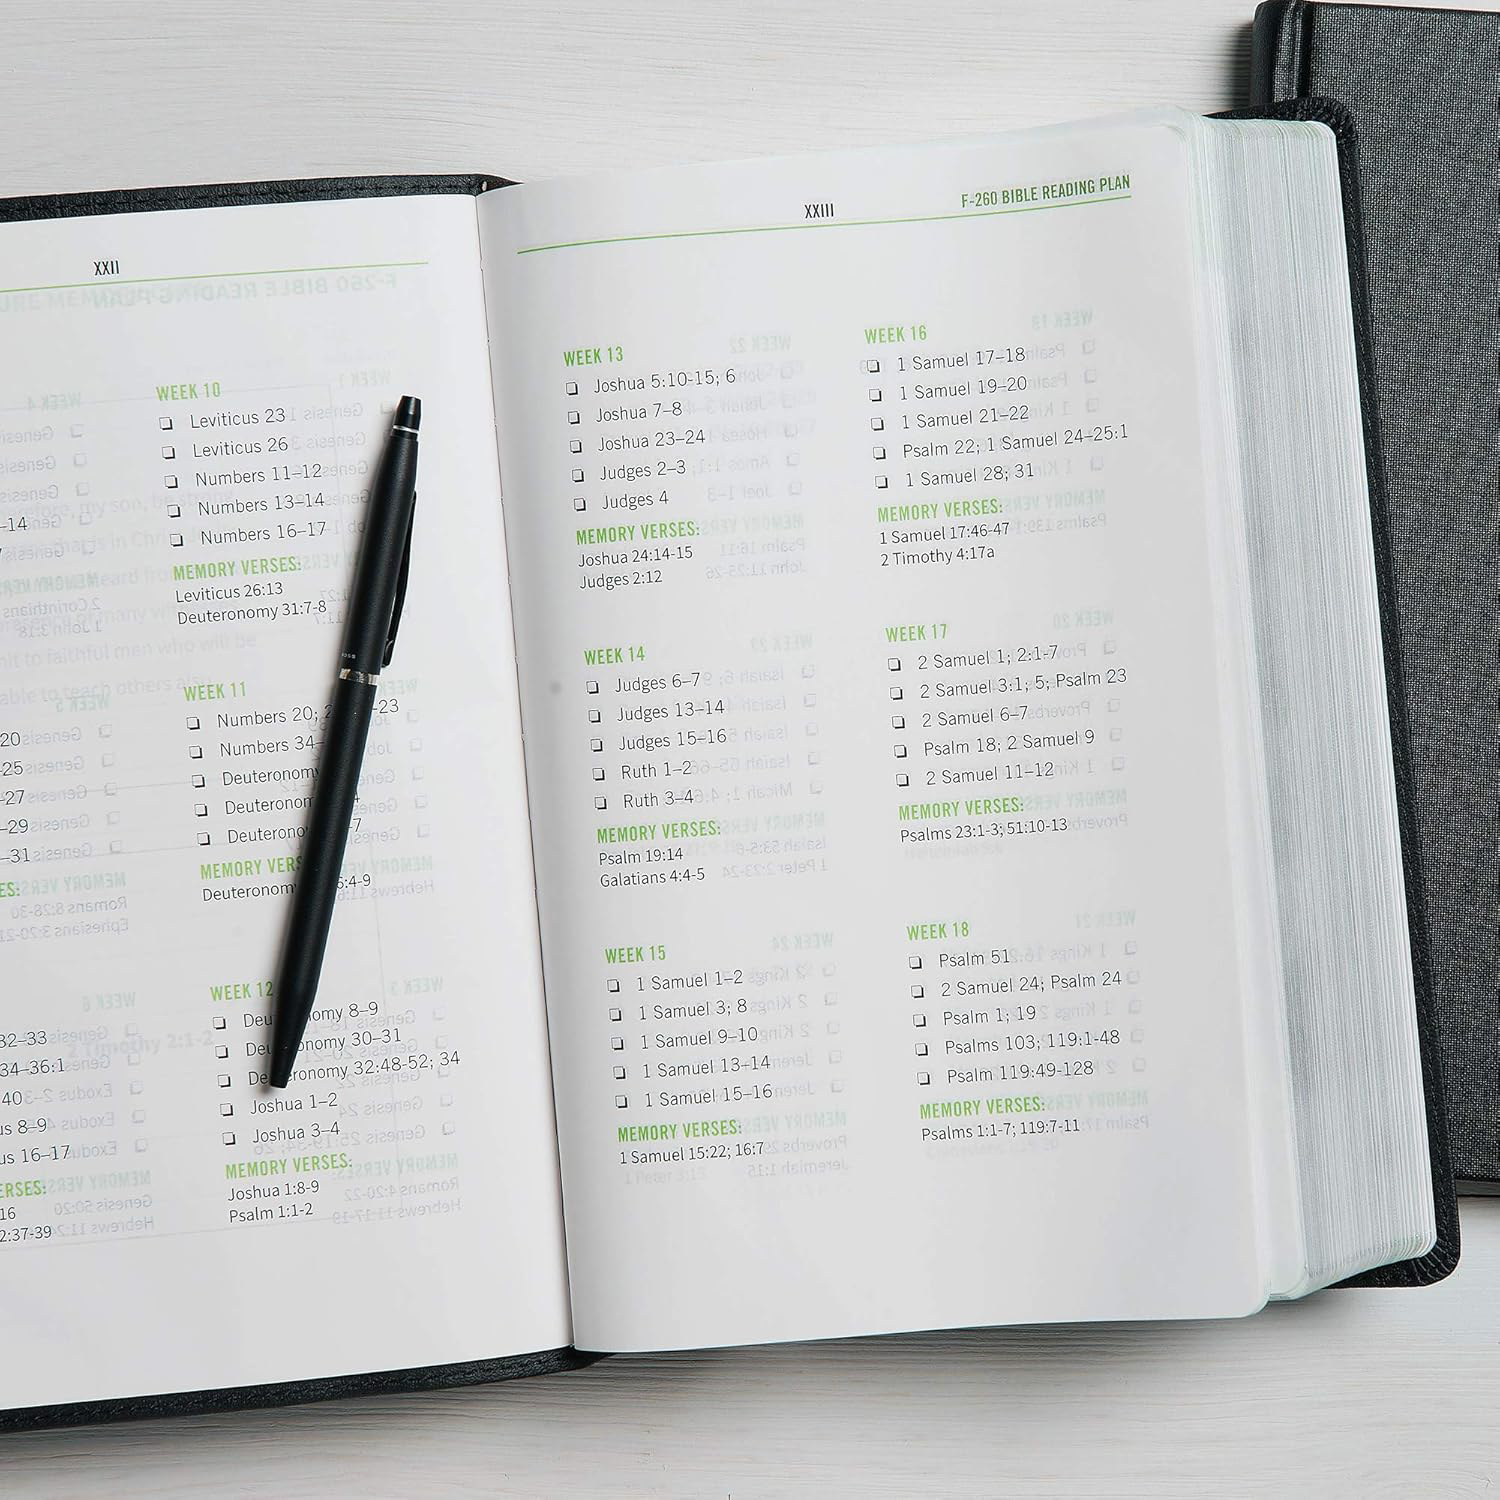 XXII
–14
20
–25
–27
–29
–31
ES:
32–33
34–36:1
40
us 8–9
us 16–17
ERSES:
16
2:37-39
WEEK 10
Leviticus 23
Leviticus 26
Numbers 11–12
Numbers 13–14
Numbers 16–17
MEMORY VERSES:
Leviticus 26:13
Deuteronomy 31:7-8
WEEK 11
Numbers 20; 2 –23
Numbers 34–
Deuteronomy
Deuteronom
Deuterono –7
MEMORY VERS
Deuteronomy 6:4-9
WEEK 12
Deu omy 8–9
De onomy 30–31
De eronomy 32:48-52; 34
Joshua 1–2
Joshua 3–4
MEMORY VERSES:
Joshua 1:8-9
Psalm 1:1-2
XXIII
F-260 BIBLE READING PLAN
WEEK 13
Joshua 5:10-15; 6
Joshua 7–8
Joshua 23–24
Judges 2–3
Judges 4
MEMORY VERSES:
Joshua 24:14-15
Judges 2:12
WEEK 14
Judges 6–7
Judges 13–14
Judges 15–16
Ruth 1–2
Ruth 3–4
MEMORY VERSES:
Psalm 19:14
Galatians 4:4-5
WEEK 15
1 Samuel 1–2
1 Samuel 3; 8
1 Samuel 9–10
1 Samuel 13–14
1 Samuel 15–16
MEMORY VERSES:
1 Samuel 15:22; 16:7
WEEK 16
1 Samuel 17–18
1 Samuel 19–20
1 Samuel 21–22
Psalm 22; 1 Samuel 24–25:1
1 Samuel 28; 31
MEMORY VERSES:
1 Samuel 17:46-47
2 Timothy 4:17a
WEEK 17
2 Samuel 1; 2:1-7
2 Samuel 3:1; 5; Psalm 23
2 Samuel 6–7
Psalm 18; 2 Samuel 9
2 Samuel 11–12
MEMORY VERSES:
Psalms 23:1-3; 51:10-13
WEEK 18
Psalm 51
2 Samuel 24; Psalm 24
Psalm 1; 19
Psalms 103; 119:1-48
Psalm 119:49-128
MEMORY VERSES:
Psalms 1:1-7; 119:7-11